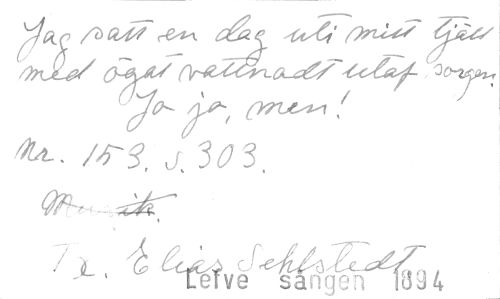 Jag satt en dag uti mitt tjäll
med ögat vattnadt utaf sorgen.
Jo jo, men!
Nr. 153. s. 303.
Musik.
Te. Elias Sehlstedt
Lefve sången 1894